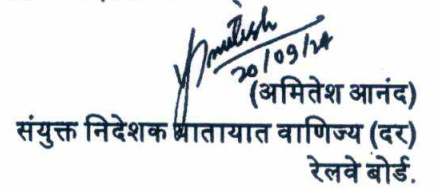 Amitesh
20/09/24
(अमितेश आनंद)
संयुक्त निदेशक यातायात वाणिज्य (दर)
रेलवे बोर्ड.